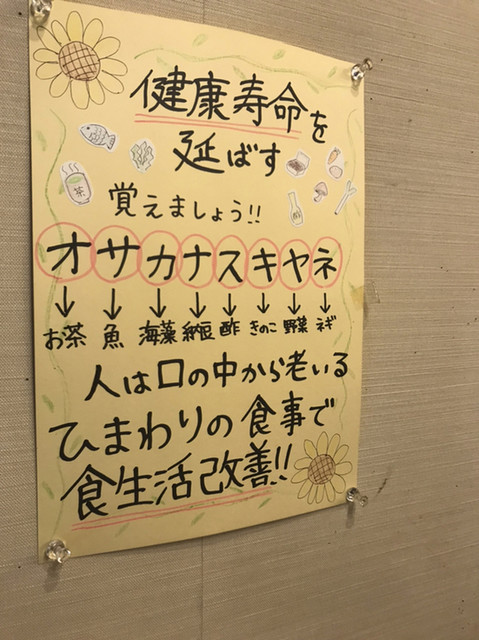 健康寿命を
延ばす
茶
酢
覚えましょう!!
オサカナスキヤネ
↓ ↓ ↓ ↓ ↓ ↓ ↓ ↓
お茶 魚 海藻 納豆 酢 きのこ 野菜 ネギ
人は口の中から老いる
ひまわりの食事で
食生活改善!!